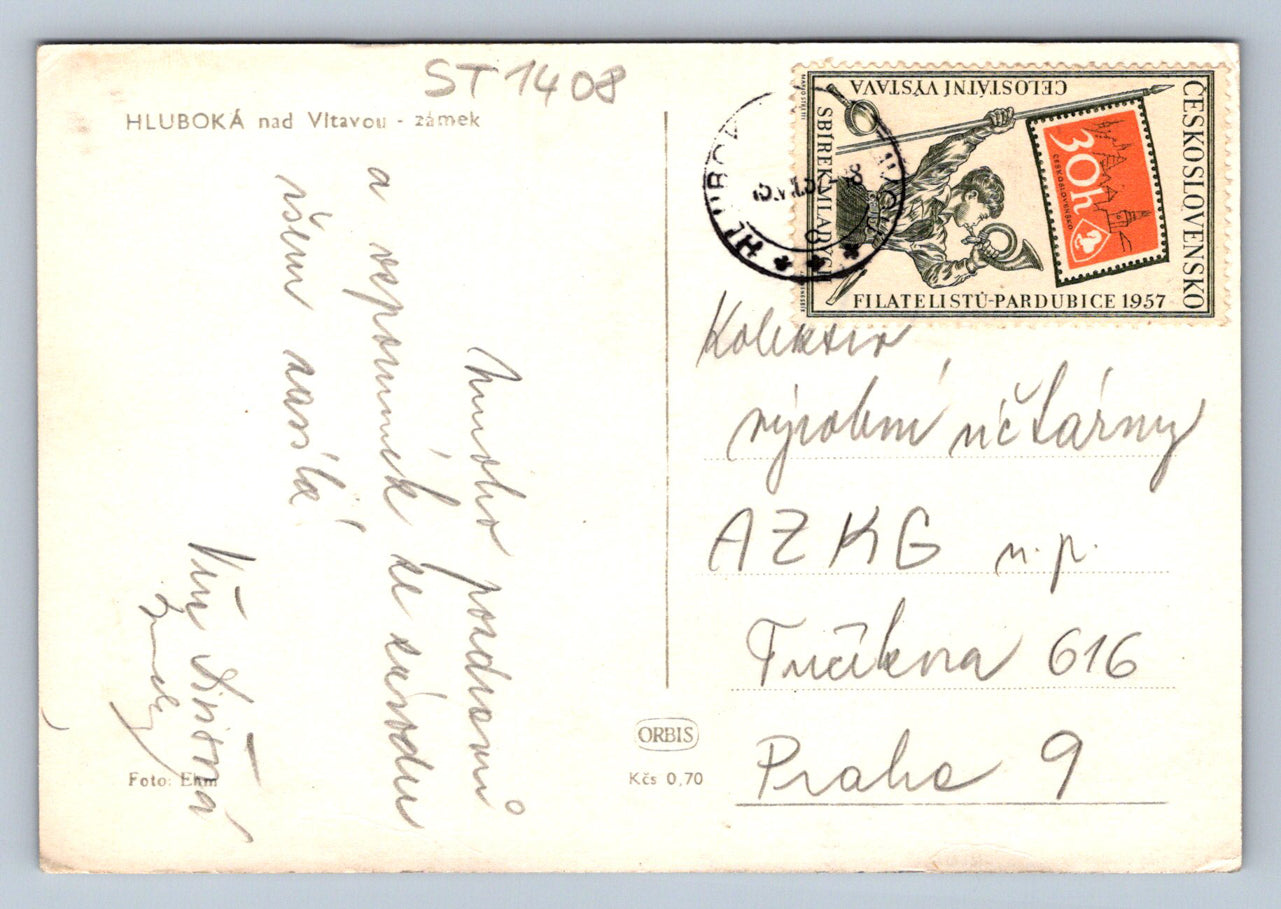 ST 1408
HLUBOKÁ nad Vltavou - zámek
Mnoho pozdravů
a vzpomínek ze závodu
všem zasílá
Foto: Ehm
ORBIS
Kčs 0,70
ČESKOSLOVENSKO
CELOSTÁTNÍ VÝSTAVA
SBÍREK MLADÝCH
FILATELISTŮ-PARDUBICE 1957
30h
ČESKOSLOVENSKO
Kolektiv
výrobní účtárny
AZKG n.p.
Fučíkova 616
Praha 9